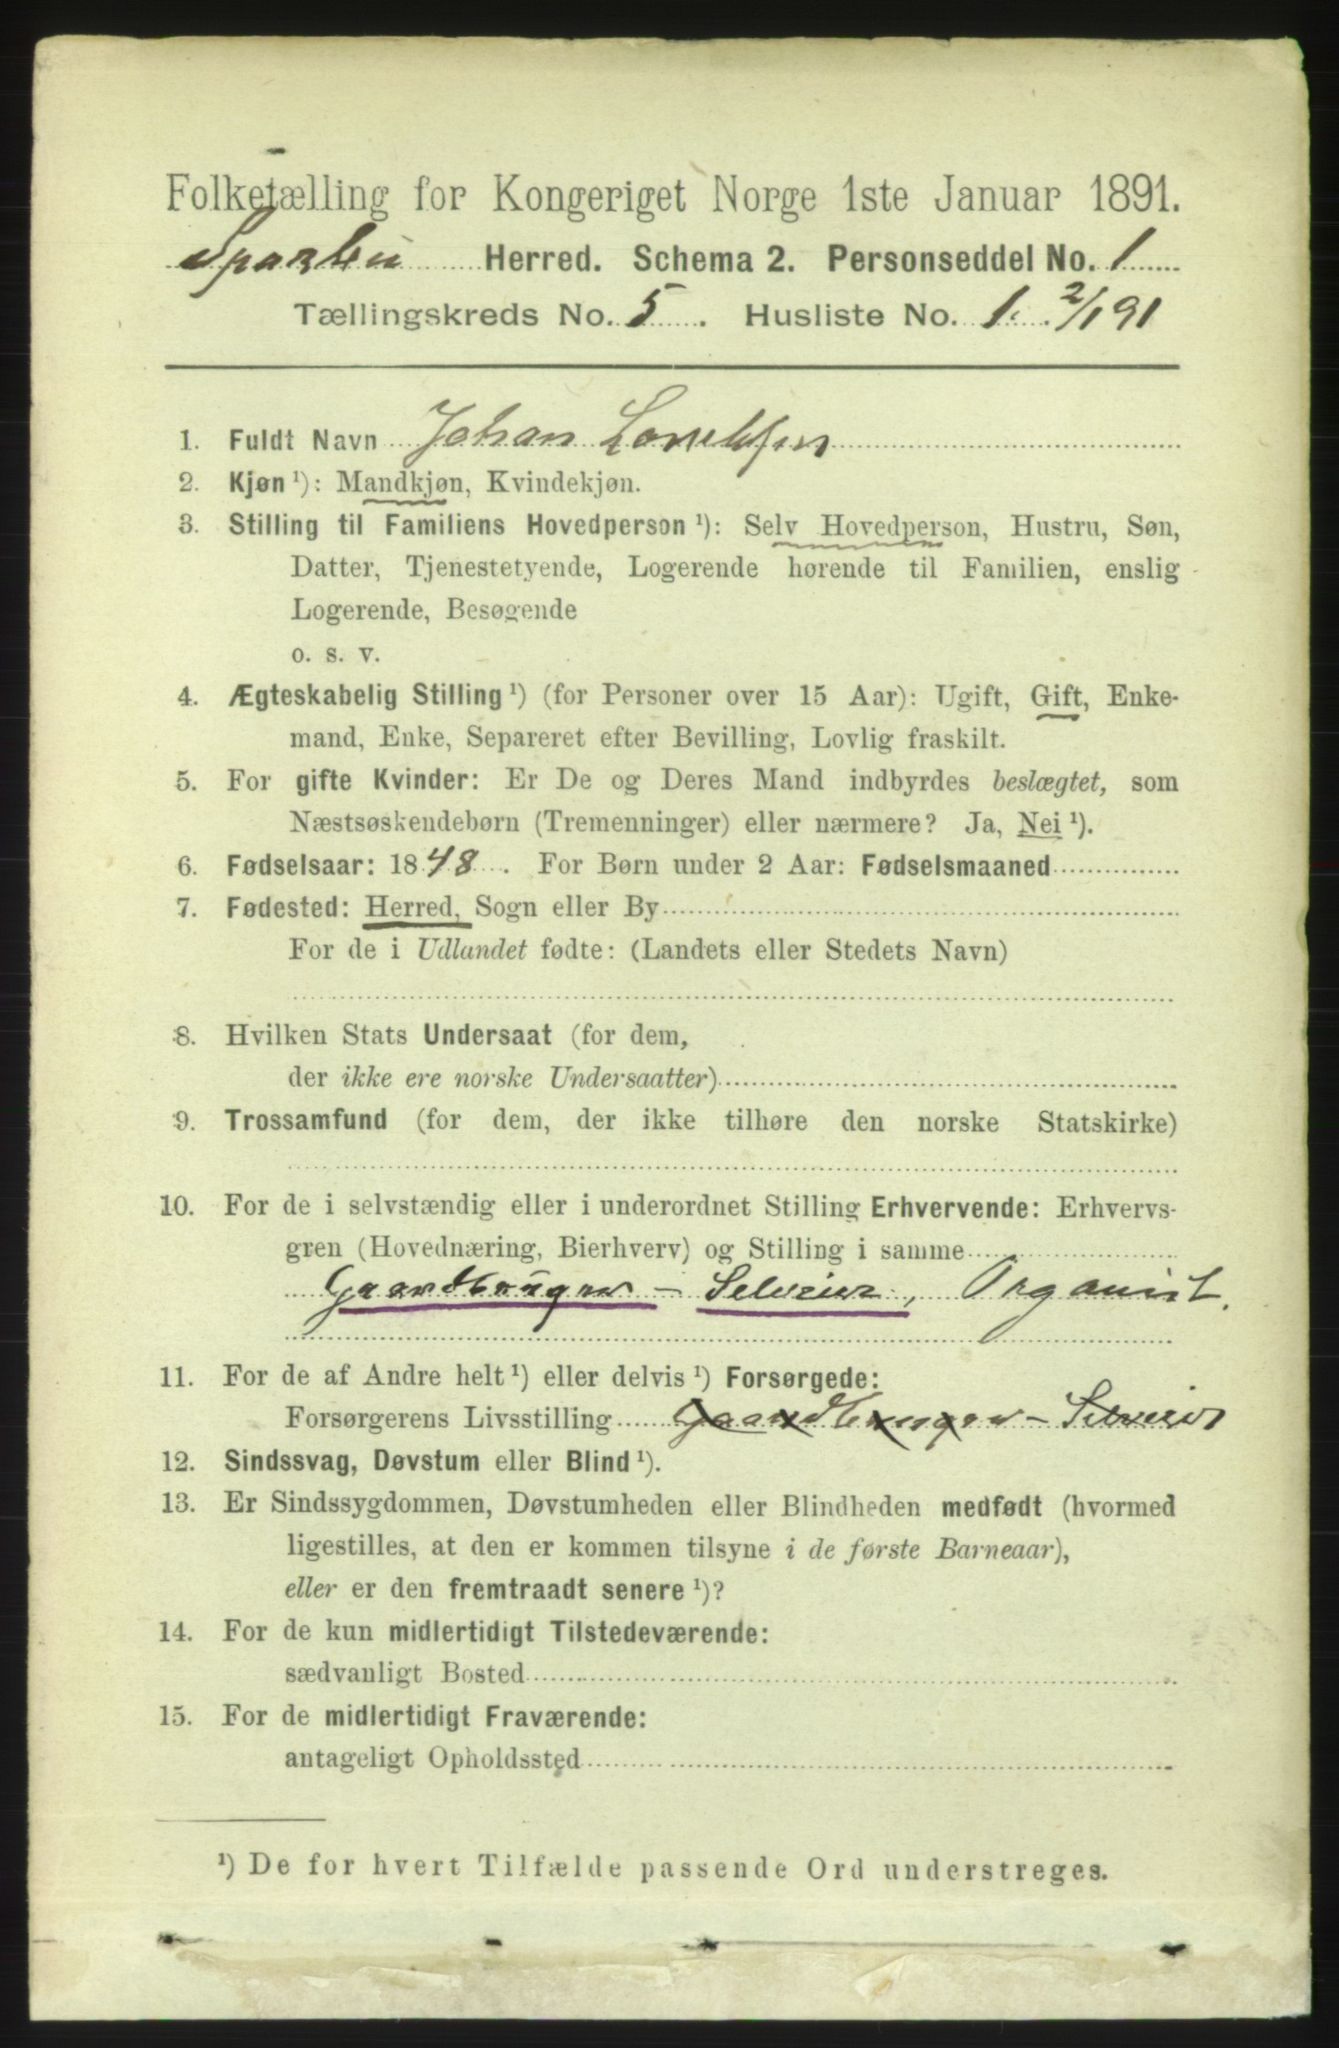 Folketælling for Kongeriget Norge 1ste Januar 1891.
Sparbu Herred. Schema 2. Personseddel No. 1
Tællingskreds No. 5. Husliste No. 1. 2/1 91
1. Fuldt Navn Johan
2. Kjøn ¹): Mandkjøn, Kvindekjøn.
3. Stilling til Familiens Hovedperson ¹): Selv Hovedperson, Hustru, Søn,
Datter, Tjenestetyende, Logerende hørende til Familien, enslig
Logerende, Besøgende
o. s. v.
4. Ægteskabelig Stilling ¹) (for Personer over 15 Aar): Ugift, Gift, Enke-
mand, Enke, Separeret efter Bevilling, Lovlig fraskilt.
5. For gifte Kvinder: Er De og Deres Mand indbyrdes beslægtet, som
Næstsøskendebørn (Tremenninger) eller nærmere? Ja, Nei ¹).
6. Fødselsaar: 1848. For Børn under 2 Aar: Fødselsmaaned
7. Fødested: Herred, Sogn eller By
For de i Udlandet fødte: (Landets eller Stedets Navn)
8. Hvilken Stats Undersaat (for dem,
der ikke ere norske Undersaatter)
9. Trossamfund (for dem, der ikke tilhøre den norske Statskirke)
10. For de i selvstændig eller i underordnet Stilling Erhvervende: Erhvervs-
gren (Hovednæring, Bierhverv) og Stilling i samme
Gaardbruger – Selveier, Organist.
11. For de af Andre helt ¹) eller delvis ¹) Forsørgede:
Forsørgerens Livsstilling Gaardbruger – Selveier
12. Sindssvag, Døvstum eller Blind ¹).
13. Er Sindssygdommen, Døvstumheden eller Blindheden medfødt (hvormed
ligestilles, at den er kommen tilsyne i de første Barneaar),
eller er den fremtraadt senere ¹)?
14. For de kun midlertidigt Tilstedeværende:
sædvanligt Bosted
15. For de midlertidigt Fraværende:
antageligt Opholdssted
¹) De for hvert Tilfælde passende Ord understreges.